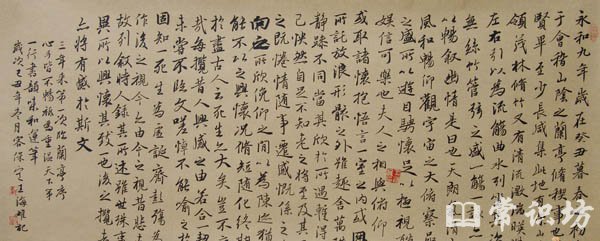 永和九年歲在癸丑暮春之初
于會稽山陰之蘭亭脩稧事也
賢畢至少長咸集此地有
領茂林脩竹又有清流激湍暎
左右引以為流觴曲水列坐其次
無絲竹管弦之盛一觴一
以暢敘幽情是日也天朗氣
風和暢仰觀宇宙之大俯察品
之盛所以遊目騁懷足以極視聽
信可樂也夫人之相與俯仰
取諸懷抱悟言一室之內或因
所託放浪形骸之外雖趣舍萬殊
靜躁不同當其欣於所遇輒得
己怏然自足不知老之將至及其
之既惓情隨事遷感慨係之
向之所欣俛仰之間以為陳跡猶
能不以之興懷況脩短隨化終期
於盡古人云死生亦大矣豈不
哉每攬昔人興感之由若合一契
未嘗不臨文嗟悼不能喻之
固知一死生為虛誕齊彭殤為
作後之視今亦由今之視昔悲夫
故列敘時人錄其所述雖世殊事
異所以興懷其致一也後之攬者
亦將有感於斯文
三年來第一次臨蘭亭序
心手皆不暢然為重返天下第
一行書韻味和運筆
歲次己丑年冬月客保定王海雄記
常识坊